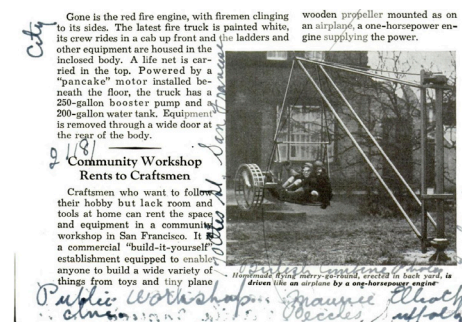 Gone is the red fire engine, with firemen clinging
to its sides. The latest fire truck is painted white,
its crew rides in a cab up front and the ladders and
other equipment are housed in the
inclosed body. A life net is car-
ried in the top. Powered by a
"pancake" motor installed be-
neath the floor, the truck has a
250-gallon booster pump and a
200-gallon water tank. Equipment
is removed through a wide door at
the rear of the body.
Community Workshop
Rents to Craftsmen
Craftsmen who want to follow
their hobby but lack room and
tools at home can rent the space
and equipment in a community
workshop in San Francisco. It is
a commercial "build-it-yourself"
establishment equipped to enable
anyone to build a wide variety of
things from toys and tiny plane
wooden propeller mounted as on
an airplane, a one-horsepower en-
gine supplying the power.
Homemade flying merry-go-round, erected in back yard, is
driven like an airplane by a one-horsepower engine
City
San
British
Public Workshop
Maurice Elliott
Beccles Suffolk